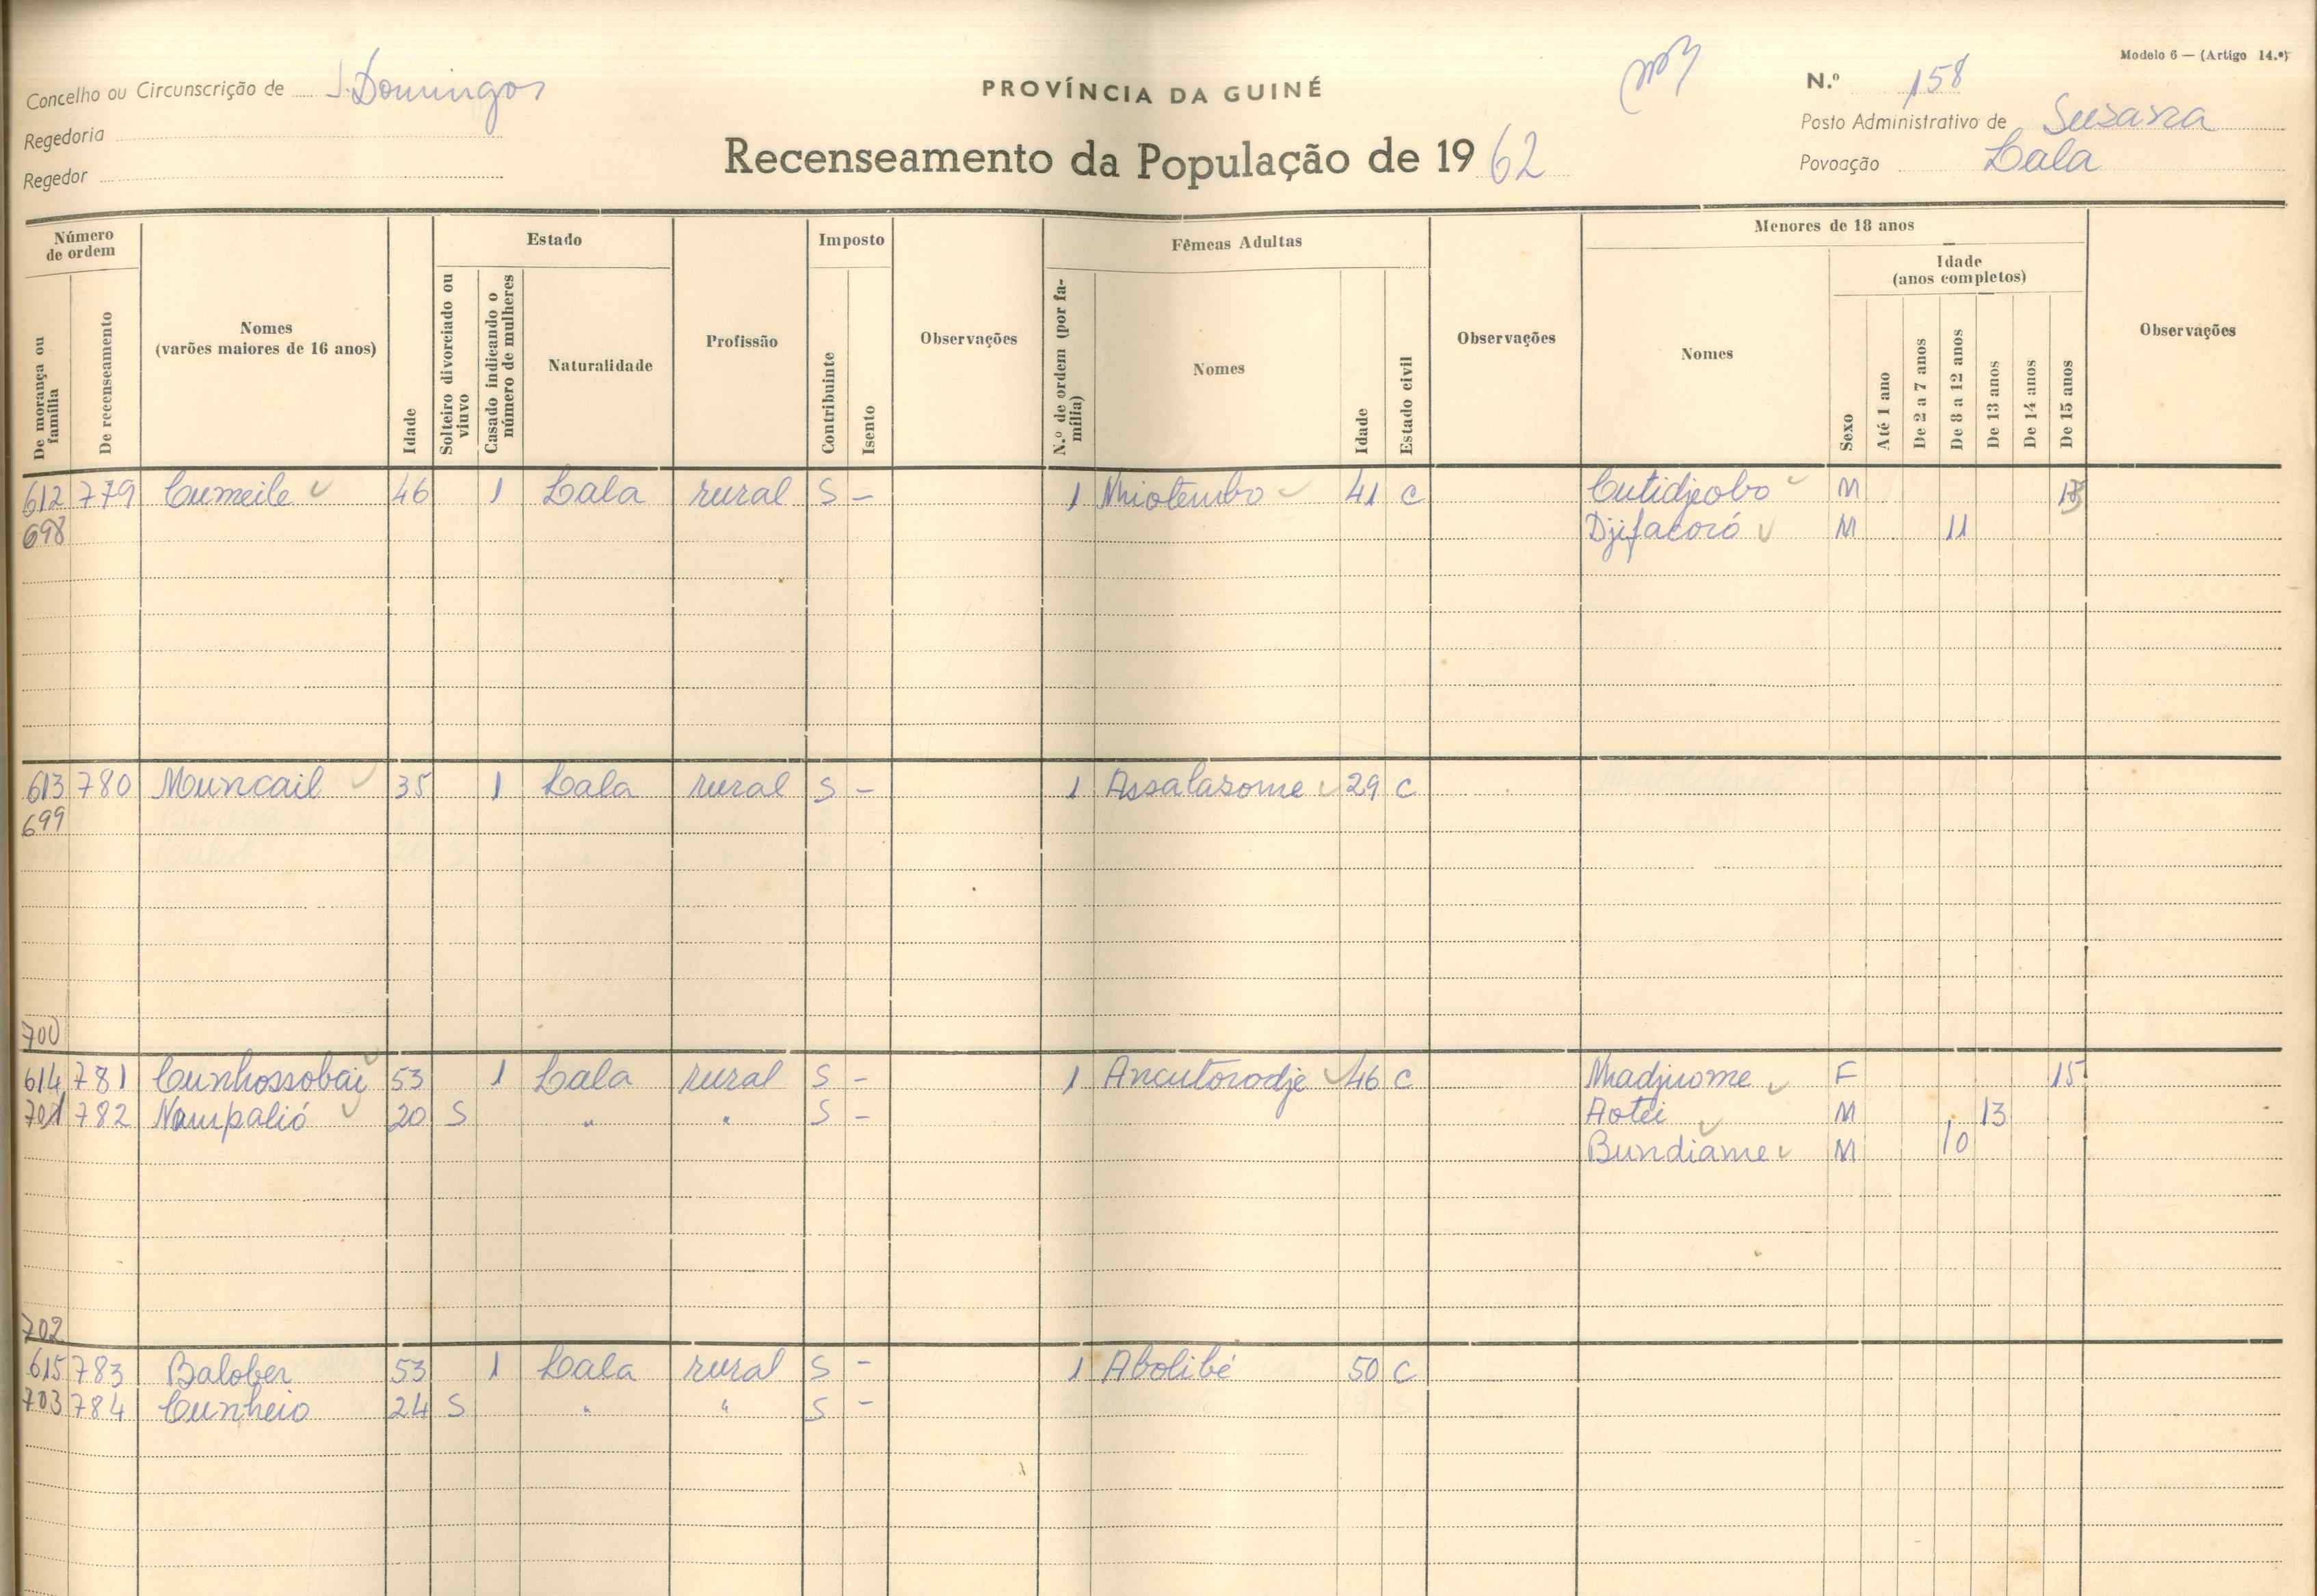 Modelo 6 — (Artigo 14.º)
Concelho ou Circunscrição de S. Domingos
PROVÍNCIA DA GUINÉ
N.º 158
Regedoria
Posto Administrativo de Suzana
Regedor
Recenseamento da População de 1962
Povoação Lala
Número de ordem
De morança ou família
De recenseamento
Nomes (varões maiores de 16 anos)
Idade
Estado
Solteiro divorciado ou viuvo
Casado indicando o número de mulheres
Naturalidade
Profissão
Imposto
Contribuinte
Isento
Observações
Fêmeas Adultas
N.º de ordem (por família)
Nomes
Idade
Estado civil
Observações
Menores de 18 anos
Nomes
Sexo
Idade (anos completos)
Até 1 ano
De 2 a 7 anos
De 8 a 12 anos
De 13 anos
De 14 anos
De 15 anos
Observações
612 779 Cumeile 46 1 Lala rural S - 1 Nhiotembo 41 C Cutidjeobo M
698 Djifacoró M 11
613 780 Muncail 35 1 Lala rural S - 1 Assalasome 29 C
699
700
614 781 Cunhossobai 53 1 Lala rural S - 1 Ancutorodje 46 C Nhadjuome F 15
701 782 Nampalió 20 S " " S - Aotei M 13
Bundiame M 10
702
615 783 Balober 53 1 Lala rural S - 1 Abolibé 50 C
703 784 Cunheio 24 S " " S -